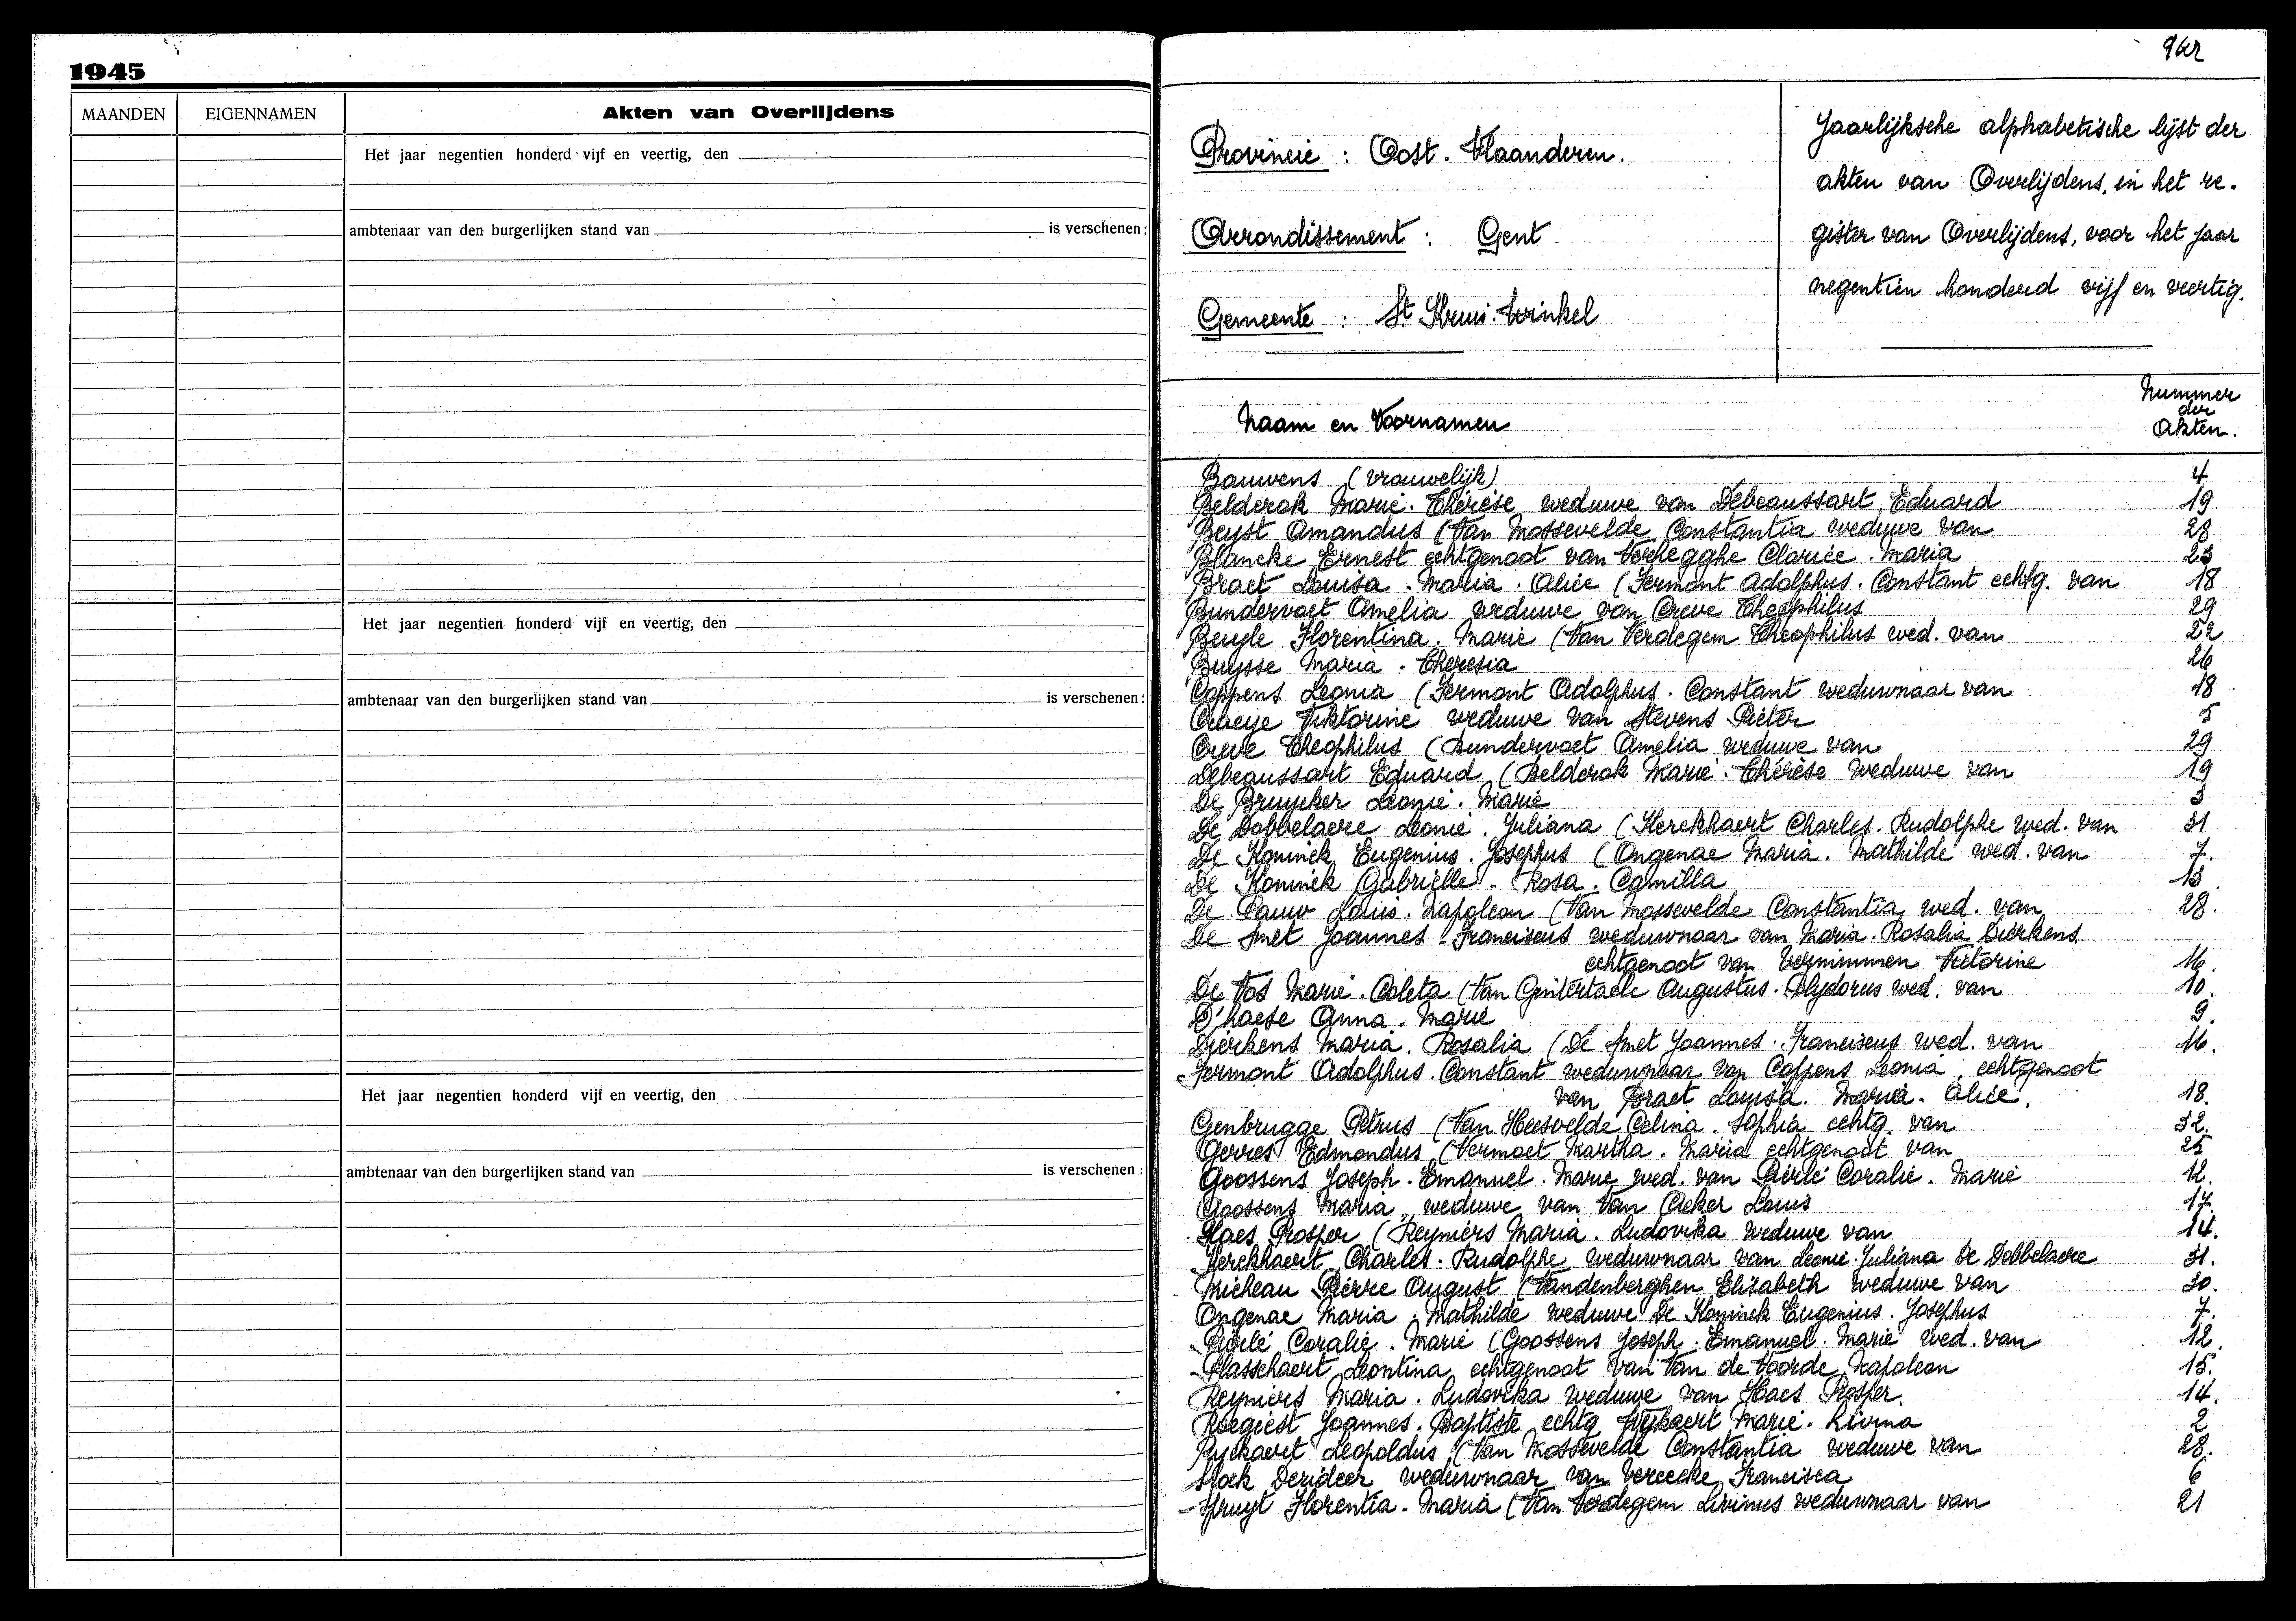 1945
MAANDEN EIGENNAMEN Akten van Overlijdens
Het jaar negentien honderd vijf en veertig, den
ambtenaar van den burgerlijken stand van is verschenen:
Het jaar negentien honderd vijf en veertig, den
ambtenaar van den burgerlijken stand van is verschenen:
Het jaar negentien honderd vijf en veertig, den
ambtenaar van den burgerlijken stand van is verschenen:
Provincie : Oost. Vlaanderen.
Arrondissement : Gent
Gemeente : St Kruis. Winkel
Jaarlijksche alphabetische lijst der
akten van Overlijdens, in het re.
gister van Overlijdens, voor het jaar
negentien honderd vijf en veertig.
Naam en Voornamen
Nummer
der
Akten.
Bauwens (vrouwelijk) 4
Belderok Marie. Thérèse weduwe van Debeaussart Eduard 19
Beyst Amandus (Van Mossevelde Constantia weduwe van 28
Blancke Ernest echtgenoot van Verhegghe Clarice. Maria 23
Braet Louisa. Maria. Alice (Fermont Adolphus. Constant echtg. van 18
Bundervoet Amelia weduwe van Creve Theophilus 29
Buyle Florentina. Marie (Van Verdegem Theophilus wed. van 22
Buysse Maria. Theresia 26
Coppens Leonia (Fermont Adolphus. Constant weduwnaar van 18
Viktorine weduwe van Stevens Pieter 5
Creve Theophilus (Bundervoet Amelia weduwe van 29
Debeaussart Eduard (Belderok Marie. Thérèse weduwe van 19
De Bruycker Leonie. Marie 3
De Dobbelaere Leonie. Juliana (Kerckhaert Charles. Rudolphe wed. van 31
De Koninck Eugenius. Josephus (Ongenae Maria. Mathilde wed. van 7.
De Koninck Gabrielle. Rosa. Camilla 13
De Pauw Louis. Napoleon (Van Mossevelde Constantia wed. van 28.
De Smet Joannes. Franciscus weduwnaar van Maria. Rosalia Dierkens
echtgenoot van Vernimmen Victorine 16.
De Vos Marie. Coleta (Van Augustus. Polydorus wed. van 10.
D'haese Anna. Marie 9.
Dierkens Maria. Rosalia (De Smet Joannes. Franciscus wed. van 16.
Fermont Adolphus. Constant weduwnaar van Coppens Leonia, echtgenoot
van Braet Louisa. Maria. Alice. 18.
Genbrugge Petrus (Van Heesvelde Celina. Sophia echtg. van 32.
Gerres Edmondus (Vermoet Martha. Maria echtgenoot van 25
Goossens Joseph. Emanuel. Marie wed. van Pierlé Coralie. Marie 12.
Goossens Maria weduwe van Van Acker Louis 17.
Haes Prosper (Reyniers Maria. Ludovika weduwe van 14.
Kerckhaert Charles. Rudolphe weduwnaar van Leonie. Juliana De Dobbelaere 31.
Micheau Pierre August (Vandenberghen Elisabeth weduwe van 30.
Ongenae Maria. Mathilde weduwe De Koninck Eugenius. Josephus 7.
Pierlé Coralie. Marie (Goossens Joseph. Emanuel. Marie wed. van 12.
Plasschaert Leontina echtgenoot van Van de Voorde Napoleon 15.
Reyniers Maria. Ludovika weduwe van Haes Prosper. 14.
Roegiest Joannes. Baptiste echtg Marie. Livina 2
Ryckaert Leopoldus (Van Mossevelde Constantia weduwe van 28.
Stock Desideer weduwnaar van Vereecke Francisca 6
Spruyt Florentia. Maria (Van Verdegem Livinus weduwnaar van 21